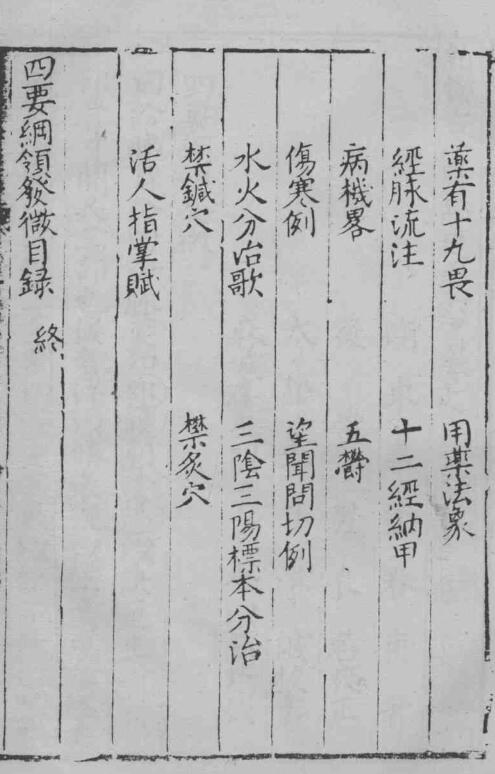 藥有十九畏　用藥法象
經脉流注　十二經納甲
病機畧　五欝
傷寒例　望聞問切例
水火分治歌　三陰三陽標本分治
禁鍼穴　禁灸穴
活人指掌賦
四要綱領發微目録　終